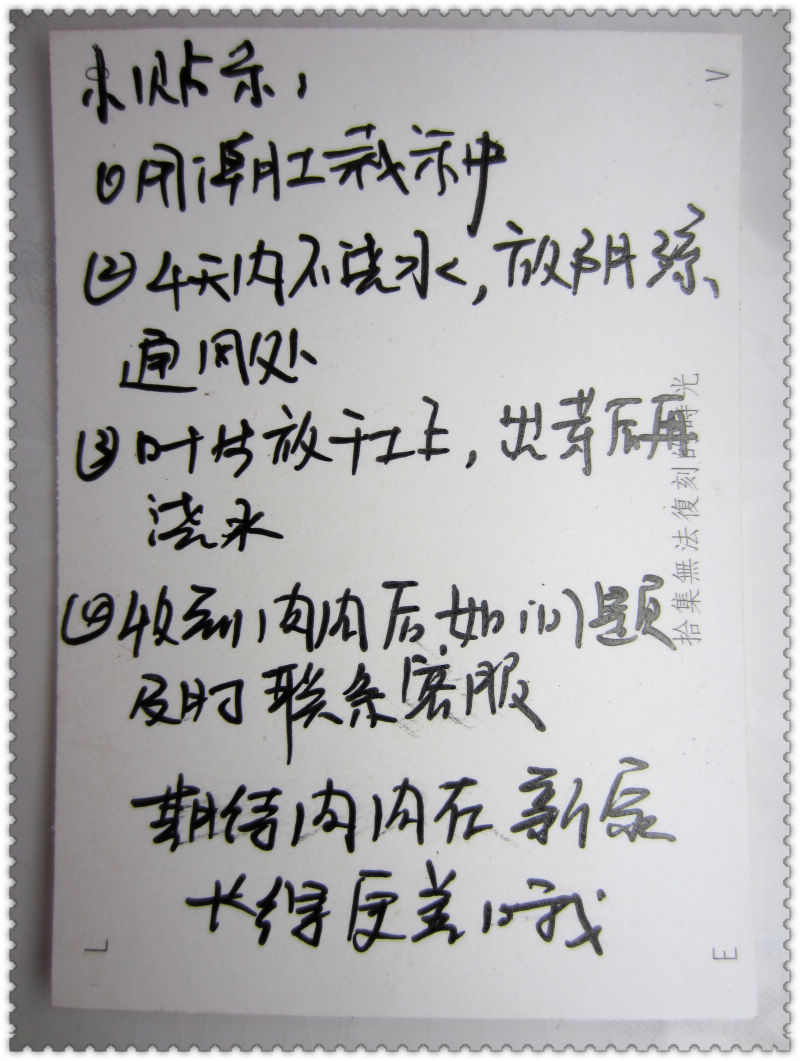 小贴示,
①用潮土栽种
②4天内不浇水,放阴凉
通风处
③叶片放干土上,出芽后再
浇水
④收到肉肉后如问题
及时联系客服
期待肉肉在新家
长得更美哦
拾集無法復刻的時光
L
O
V
E